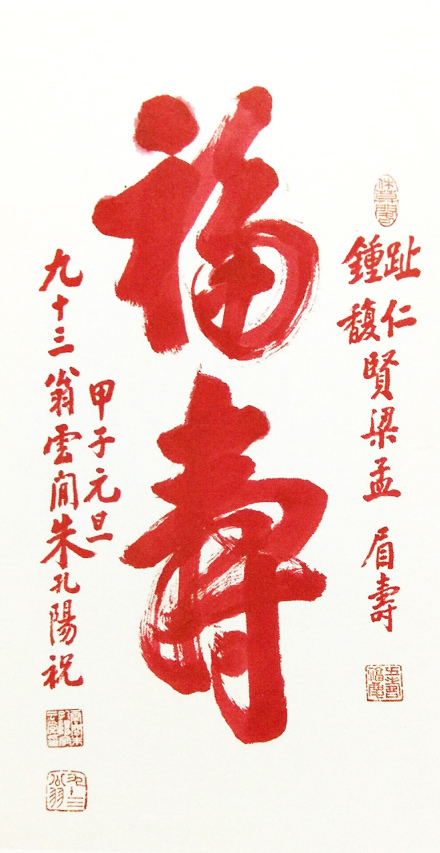 趾仁
鍾馥
賢梁孟 眉壽
福壽
甲子元旦
九十三翁雲閒朱孔陽祝